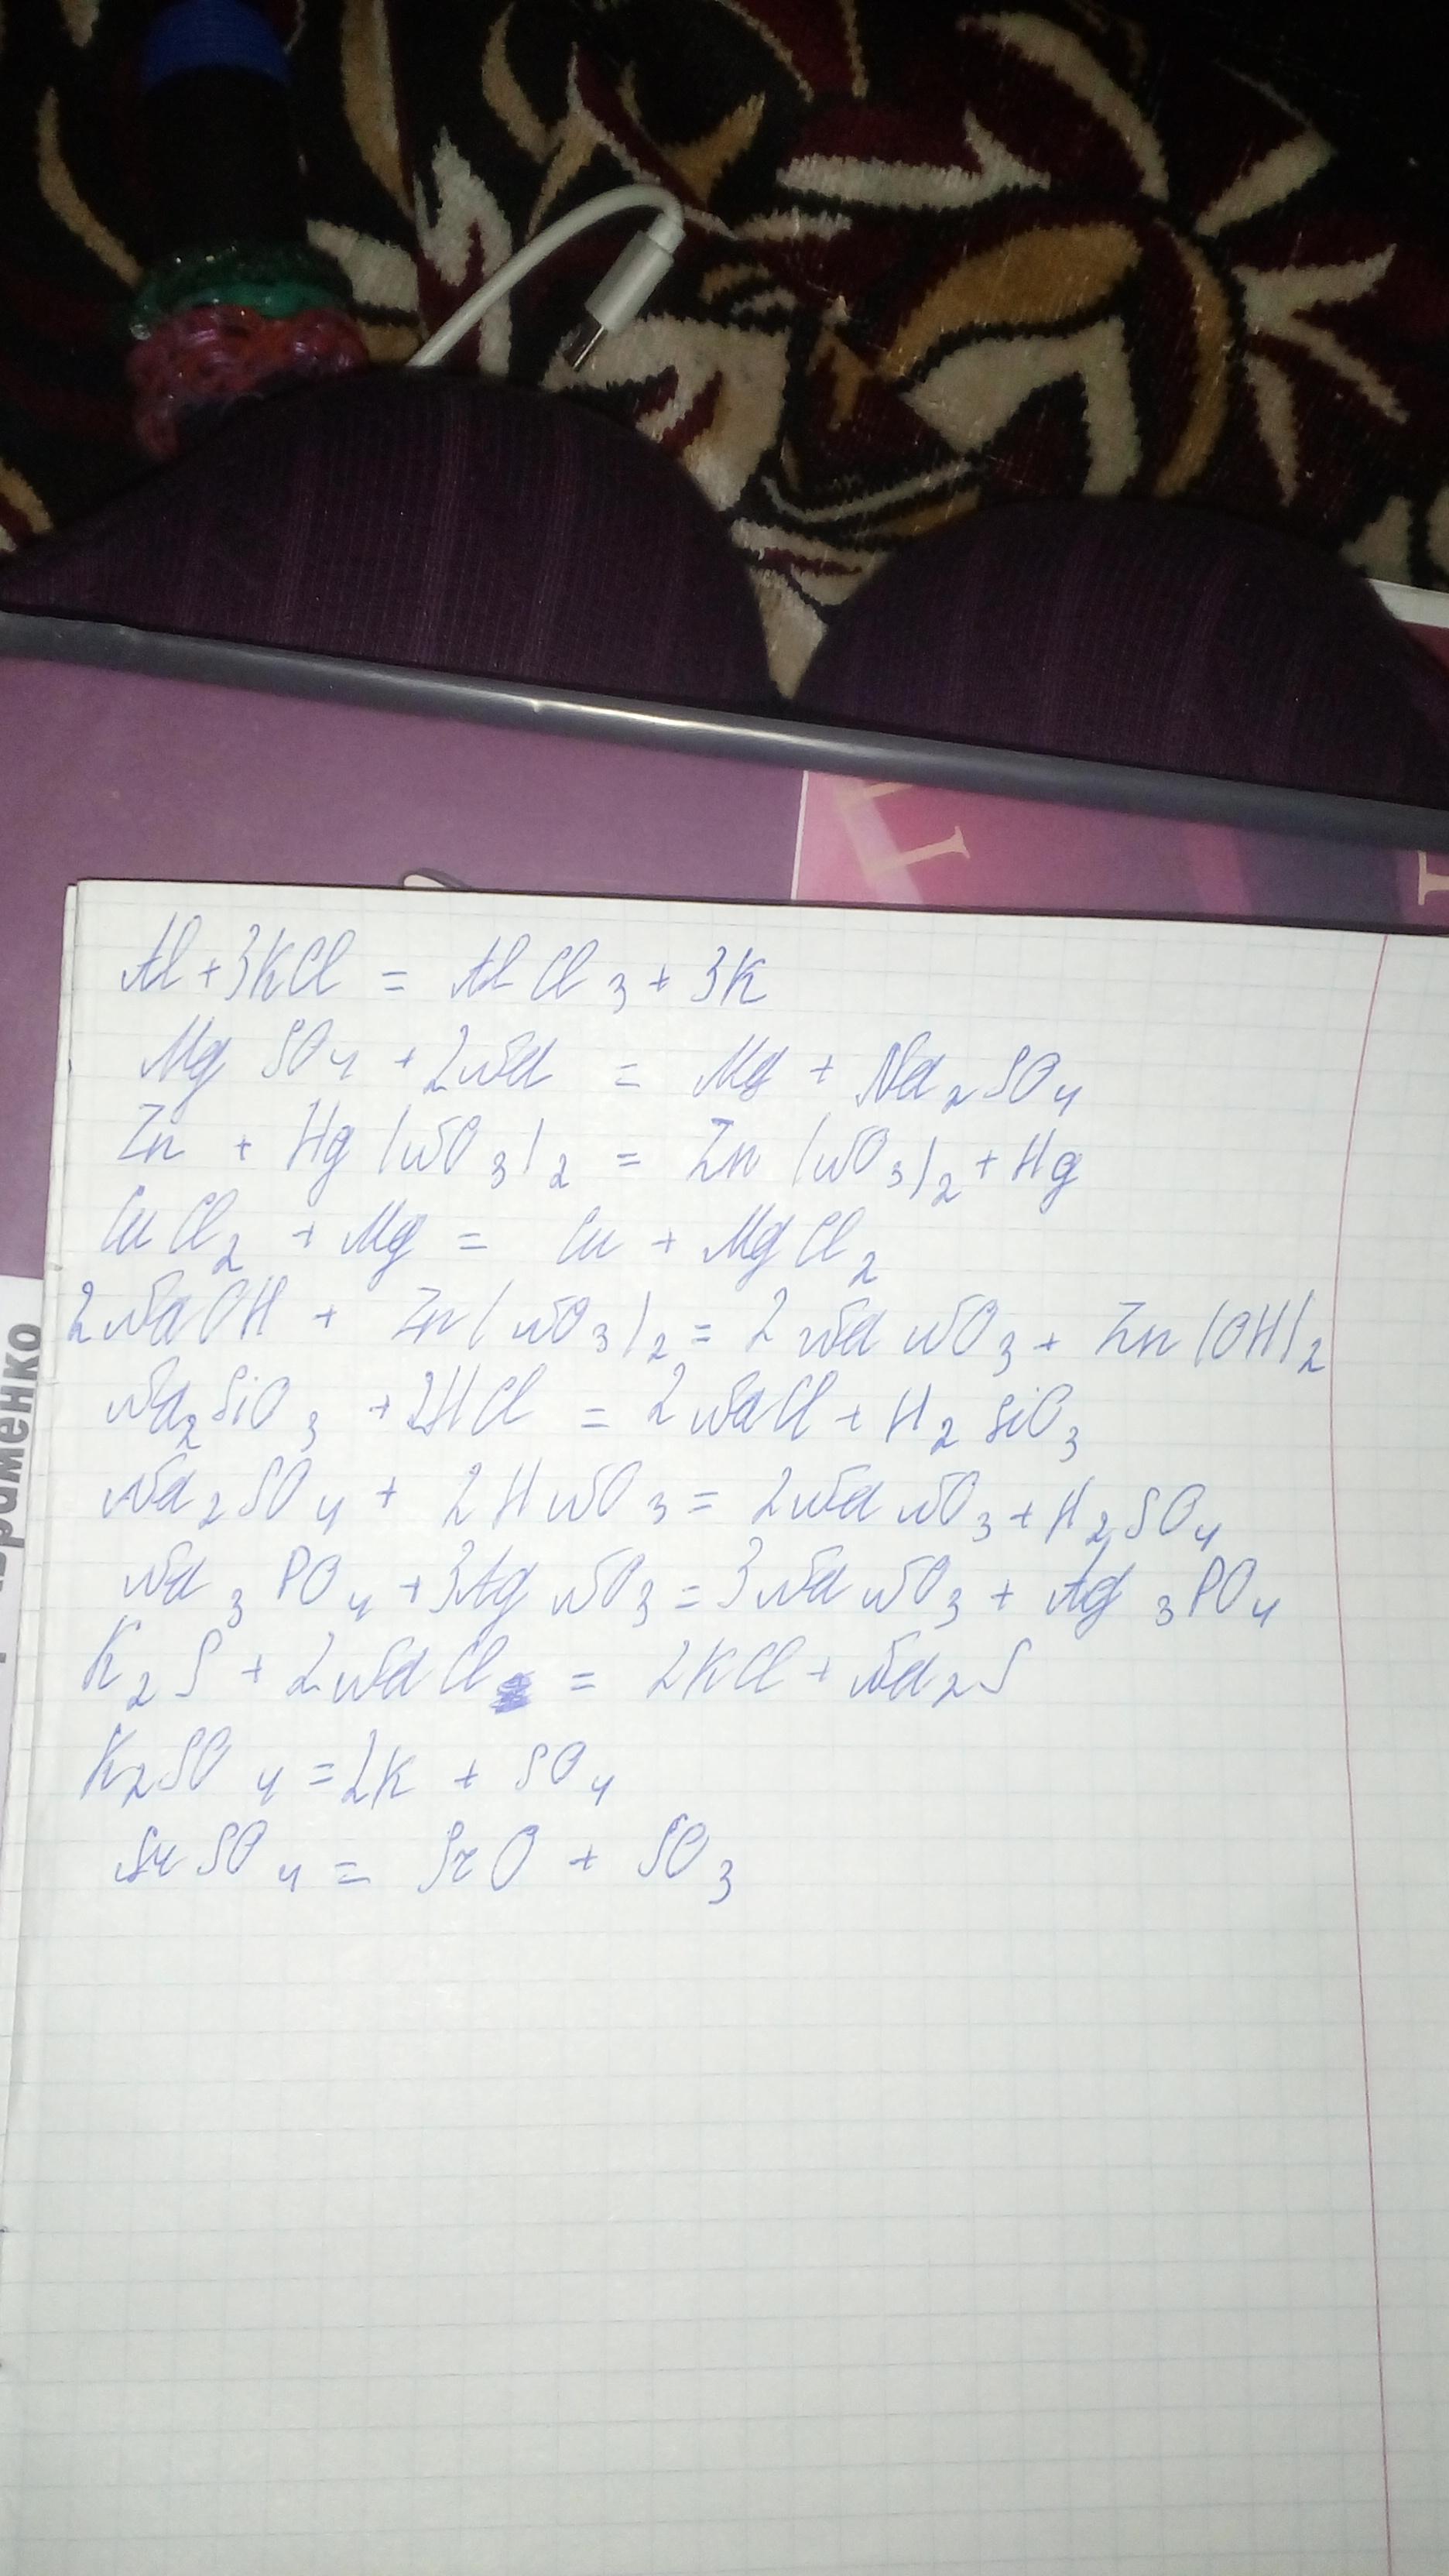 Al + 3KCl = AlCl3 + 3K
MgSO4 + 2Na = Mg + Na2SO4
Zn + Hg(NO3)2 = Zn(NO3)2 + Hg
CuCl2 + Mg = Cu + MgCl2
2NaOH + Zn(NO3)2 = 2NaNO3 + Zn(OH)2
Na2SiO3 + 2HCl = 2NaCl + H2SiO3
Na2SO4 + 2HNO3 = 2NaNO3 + H2SO4
Na3PO4 + 3AgNO3 = 3NaNO3 + Ag3PO4
K2S + 2NaCl = 2KCl + Na2S
K2SO4 = 2K + SO4
SrSO4 = SrO + SO3